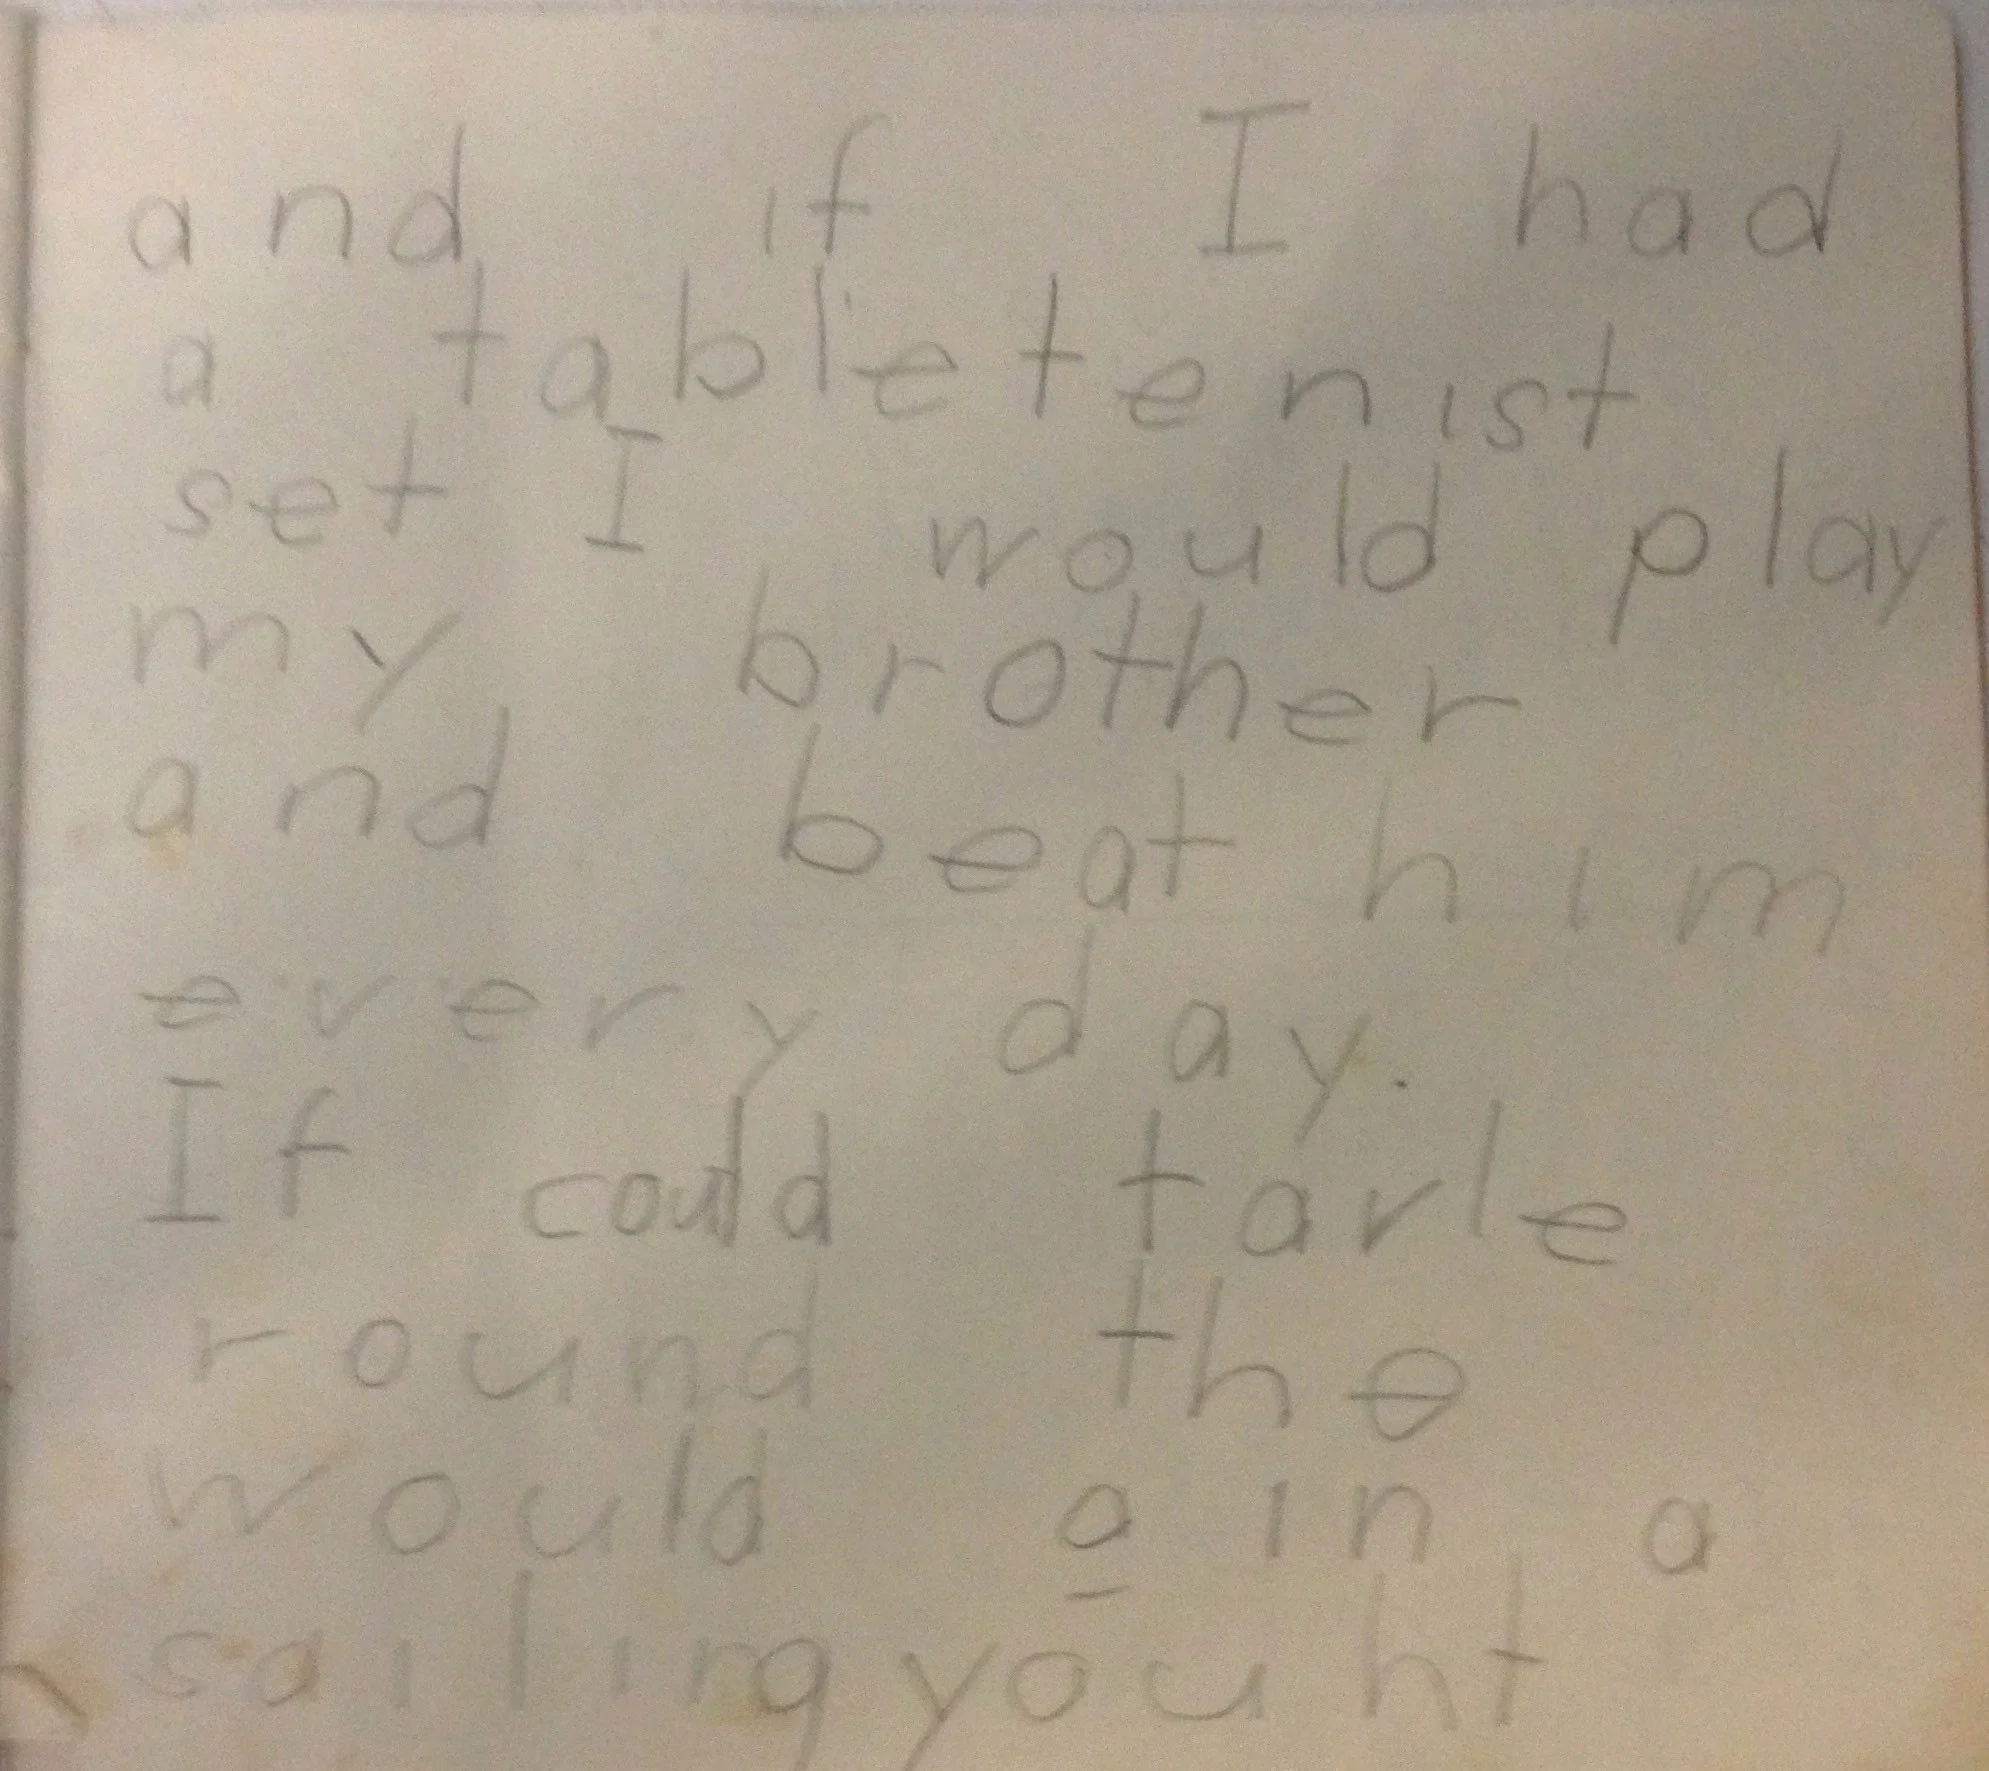 and if I had
a table tenist
set I would play
my brother
and beat him
every day.
If could tarle
round the
would a in a
sailing youht